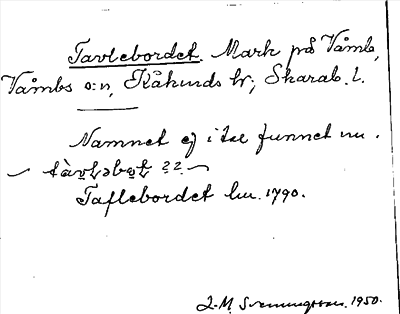 Tavlebordet. Mark på Våmb,
Våmbs s:n, Kåkinds hr; Skarab. l.
Namnet ej i tal funnet nu.
Taflebordet lm. 1790.
J.-M. Svenungsson. 1950.